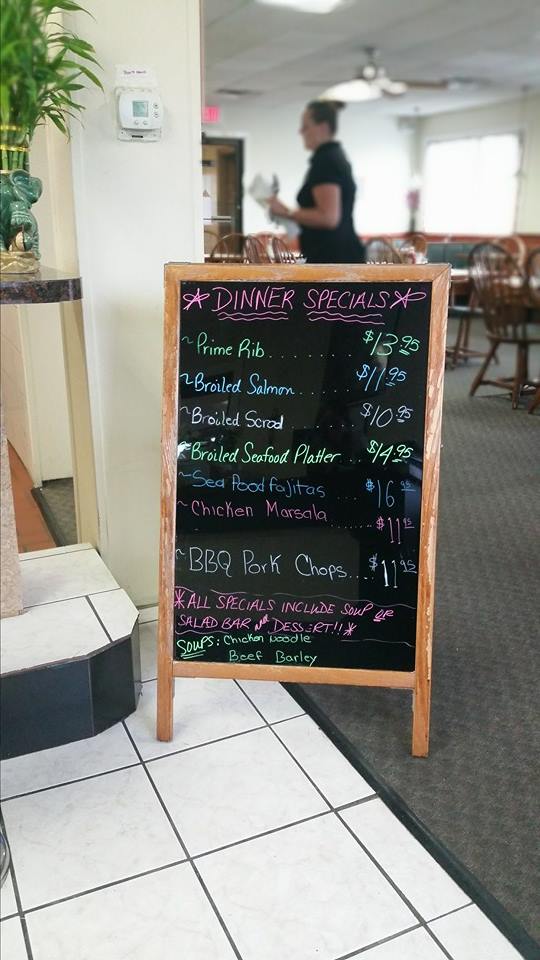 DINNER SPECIALS
~Prime Rib......... $13.95
~Broiled Salmon..... $11.95
~Broiled Scrod ...... $10.95
~Broiled Seafood Platter... $14.95
~Sea Food fajitas .... $16.95
~Chicken Marsala........ $11.95
~BBQ Pork Chops.... $11.95
*ALL SPECIALS INCLUDE SOUP OR
SALAD BAR and DESSERT!!*
SOUPS: Chicken Noodle
Beef Barley